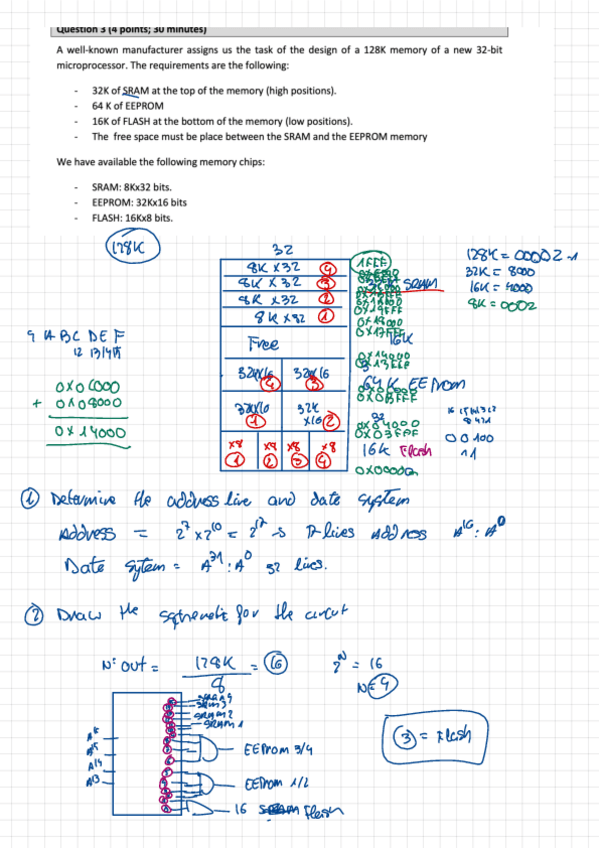 Question 3 (4 points; 30 minutes)
A well-known manufacturer assigns us the task of the design of a 128K memory of a new 32-bit
microprocessor. The requirements are the following:
- 32K of SRAM at the top of the memory (high positions).
- 64 K of EEPROM
- 16K of FLASH at the bottom of the memory (low positions).
- The free space must be place between the SRAM and the EEPROM memory
We have available the following memory chips:
- SRAM: 8Kx32 bits.
- EEPROM: 32Kx16 bits
- FLASH: 16Kx8 bits.
128K
32
128K = 00002 -1
32K = 8000
16K = 4000
8K = 0002
8K x 32 4
8K x 32 3
8K x 32 2
8K x 32 1
1FFF
SRAM
Free
16K
0x14000
9 A B C D E F
12 13 14 15
32Kx16 4
32Kx16 3
64K EEPROM
1
32K x16 2
0x04000
0x03FFF
0x0C000
+ 0x08000
0x14000
0 0 100
11
x8 1
x8 2
x8 3
x8 4
16K Flash
0x00000
1 Determine the address live and date system
Address = 2^7 x 2^10 = 2^17 → 17-lives Address A^16 : A^0
Date sytem = A^31 : A^0 32 lives.
2 Draw the sqhematic for the circut
Nº out = 128K / 8 = 16
2^N = 16
N = 4
SRAM 4
SRAM 3
SRAM 2
SRAM 1
A16
A15
A14
A13
EEProm 3/4
EEProm 1/2
16 Flash
3 = Flash